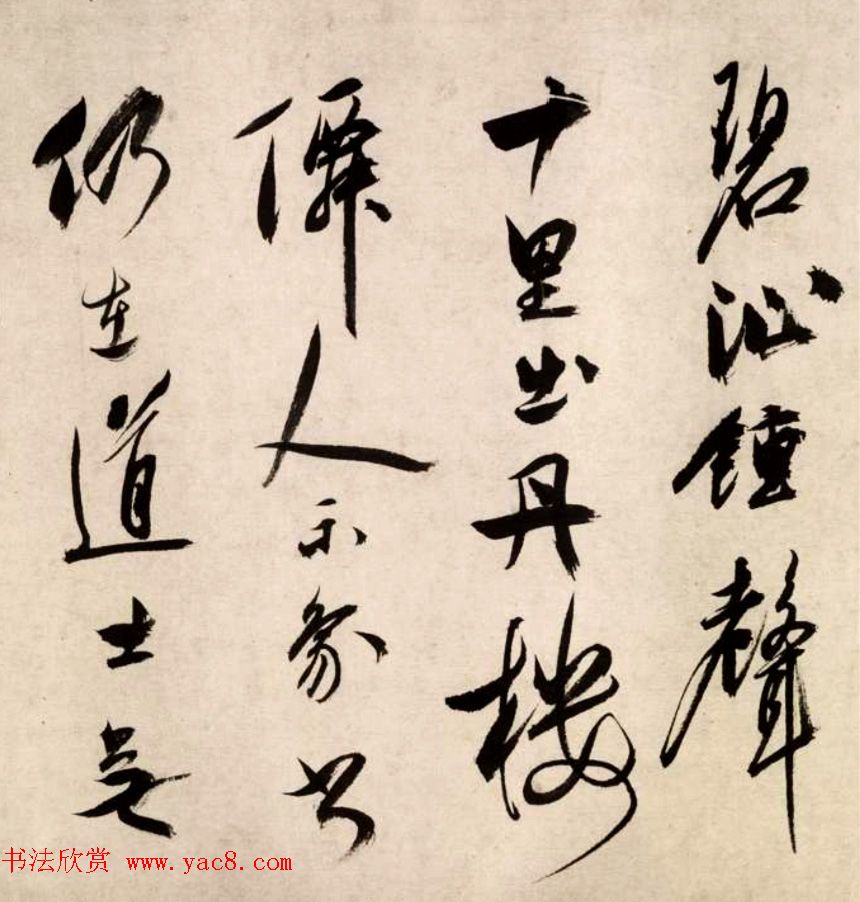 碧汕鍾聲
十里出丹樓
僊人示象
仍在道士
书法欣赏 www.yac8.com